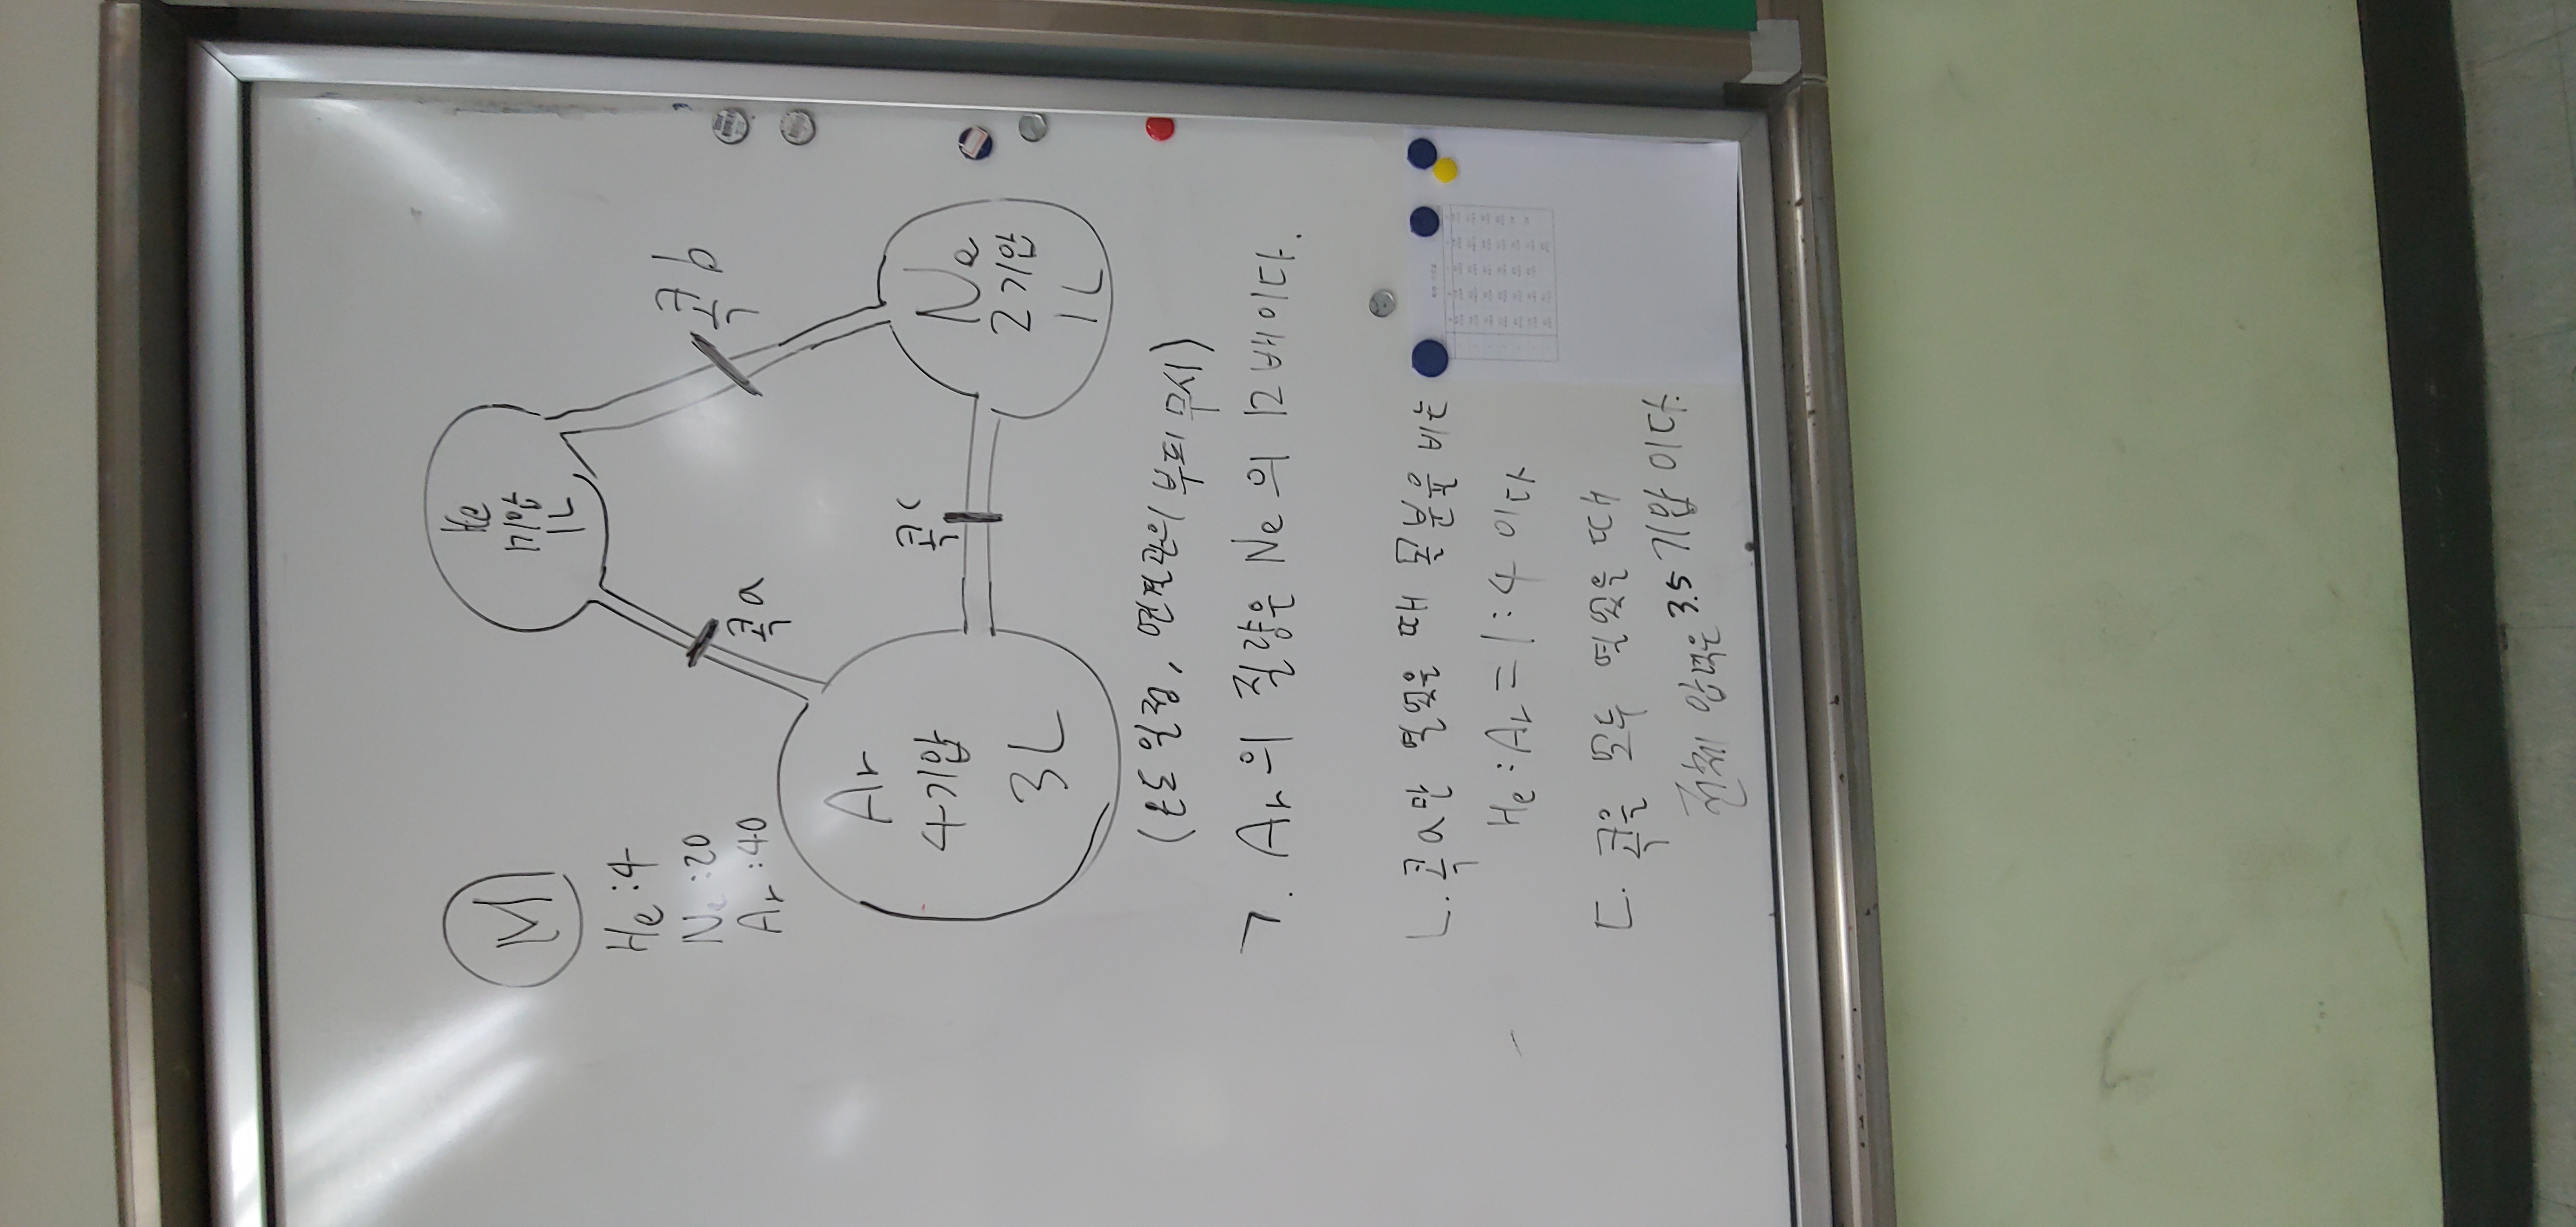 M
He : 4
Ne : 20
Ar : 40
He
1기압
1L
콕 a
콕 b
Ar
4기압
3L
콕 c
Ne
2기압
1L
(온도 일정, 연결관의 부피 무시)
ㄱ. Ar의 질량은 Ne의 12배이다.
ㄴ. 콕 a만 열었을 때 몰분율 비는
He : Ar = 1 : 4 이다
ㄷ. 콕을 모두 열었을 때
전체 압력은 3.5 기압이다.